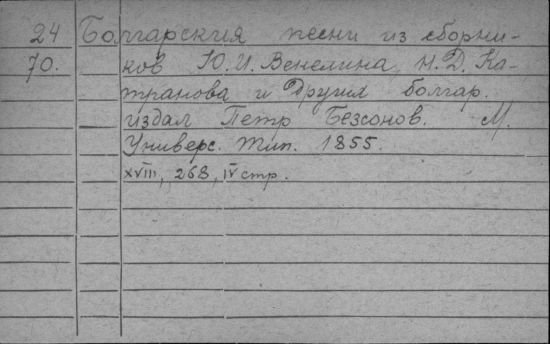 24 Болгарския песни из сборни-
70. ков Ю. И. Венелина, Н. Д. Ка-
транова и других болгар.
издал Петр Безсонов. М.
Универс. Тип. 1855.
XVIII, 268, IV стр.